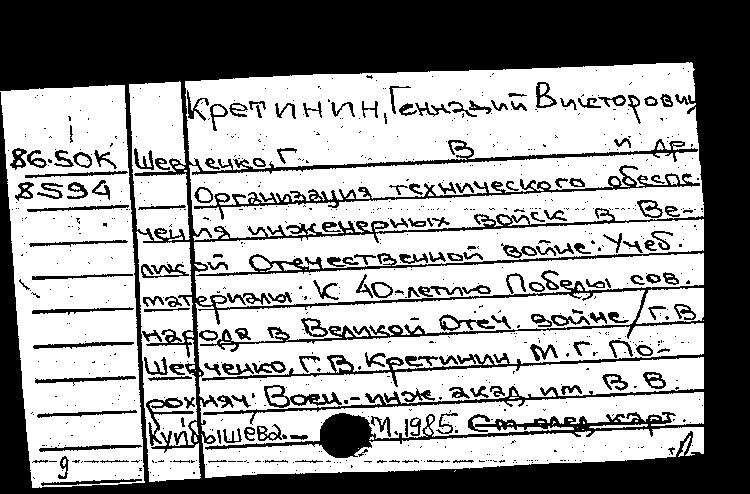 Кретинин, Геннадий Викторович
86.50К Шевченко, Г. В и др.
8594 Организация технического обеспе-
чения инженерных войск в Ве-
ликой Отечественной войне: Учеб.
материалы: К 40-летию Победы сов.
народа в Великой Отеч. войне / Г.В.
Шевченко, Г.В. Кретинин, М.Г. По-
рохняч; Воен.-инж. акад. им. В.В.
Куйбышева. – М., 1985. См. след. карт.
9